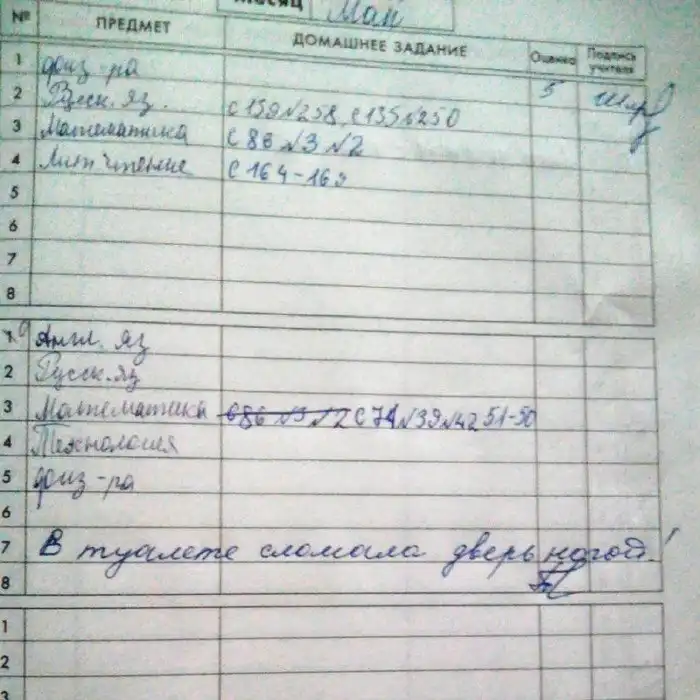 МЕСЯЦ Май
№ ПРЕДМЕТ ДОМАШНЕЕ ЗАДАНИЕ Оценка Подпись учителя
1 физ-ра
2 Русск. яз. с 159 №258, с 135 №250 5
3 Математика с 86 №3 №2
4 Лит чтение с 164-169
5
6
7
8
1 Англ. яз
2 Русск. яз
3 Математика с 86 №3 №2 с 74 №39 №42 51-50
4 Технология
5 физ-ра
6
7 В туалете сломала дверь ногой!
8
1
2
3